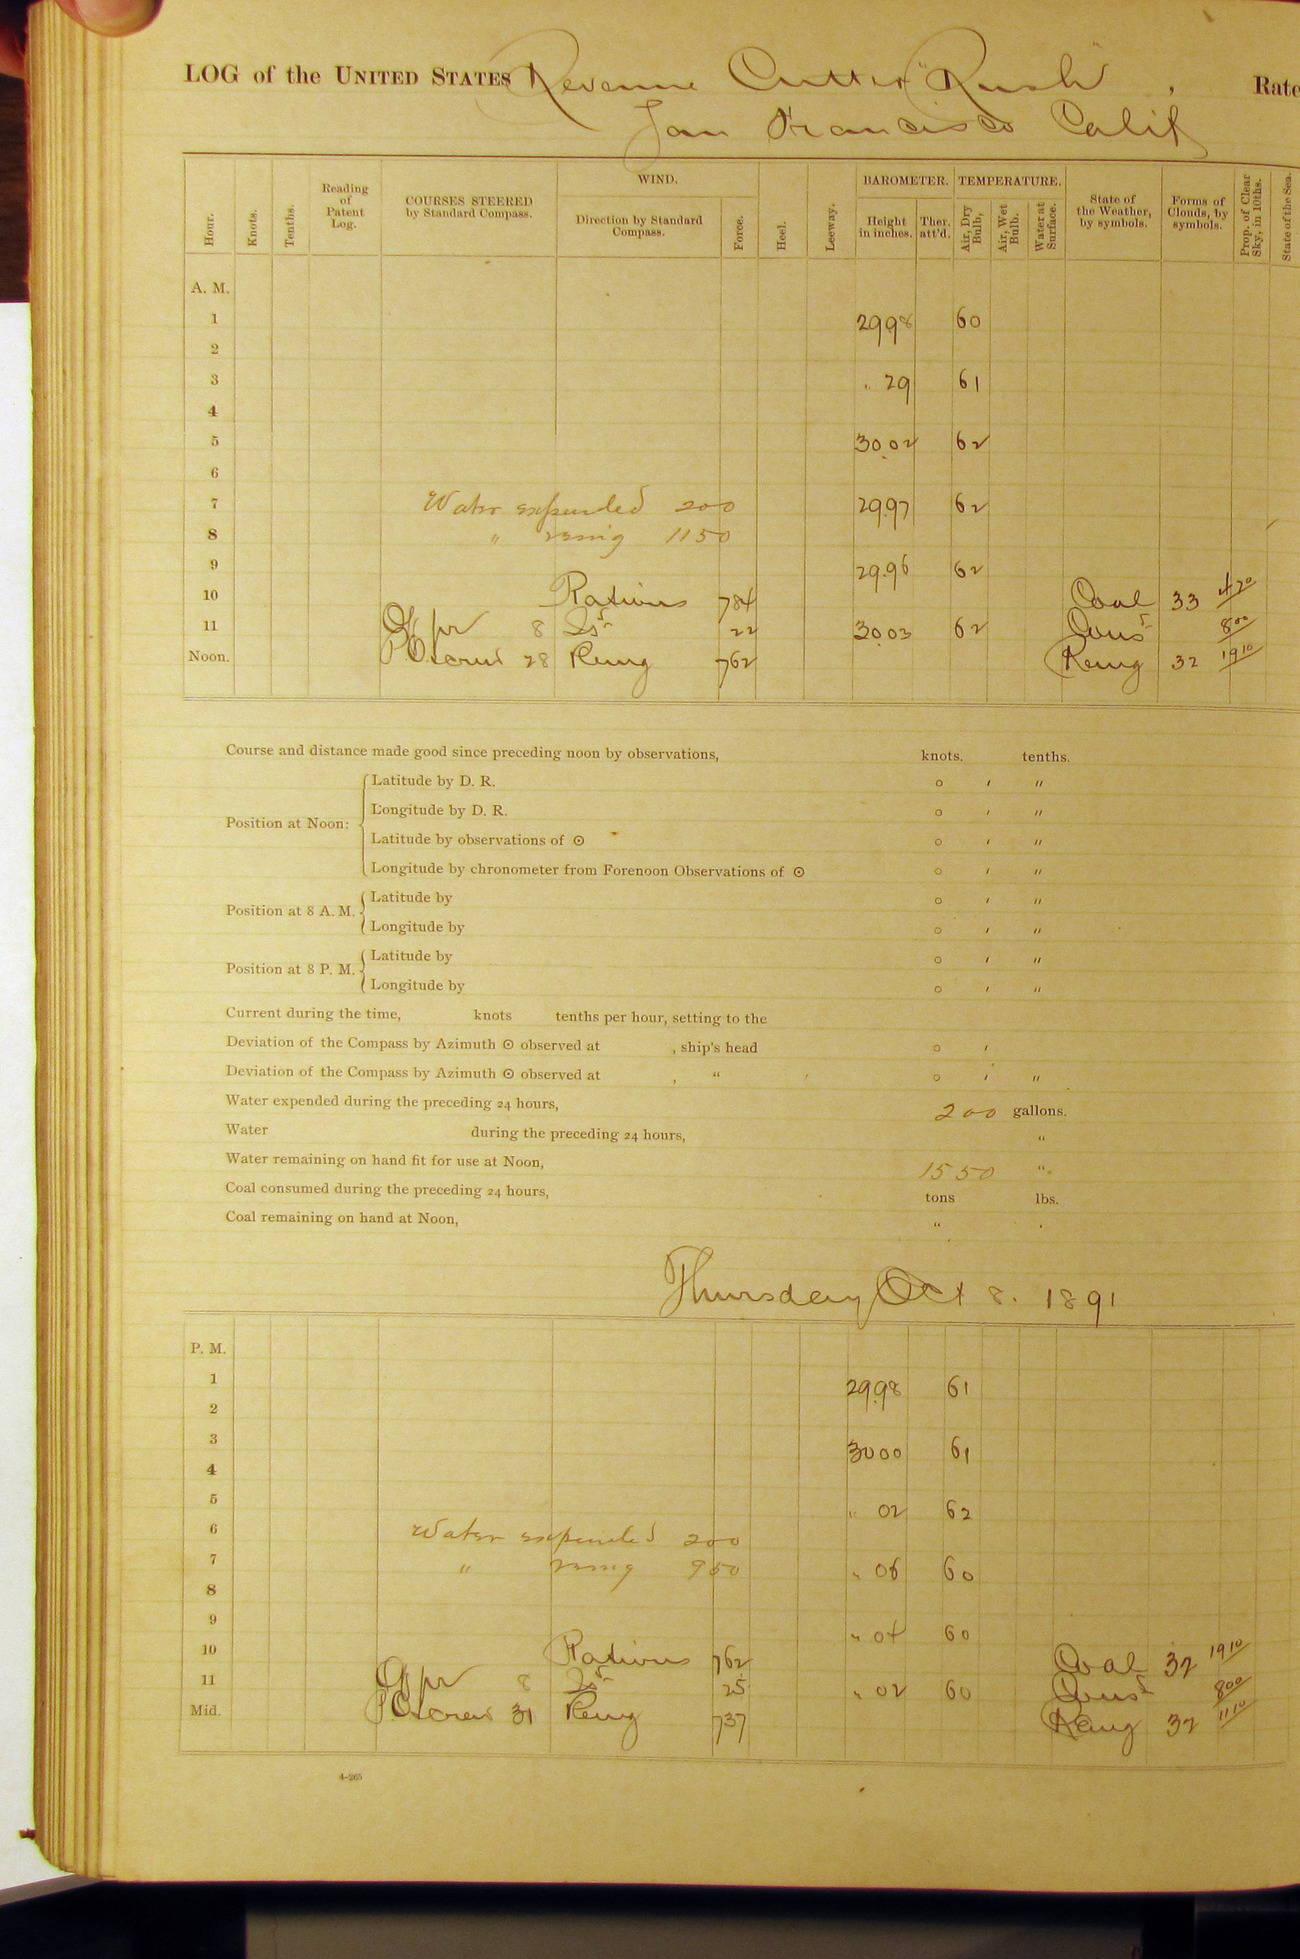 LOG of the UNITED STATES Revenue Cutter "Rush", Rate
San Francisco Calif
Hour. Knots. Tenths. Reading of Patent Log. COURSES STEERED by Standard Compass. WIND. Direction by Standard Compass. Force. Heel. Leeway. BAROMETER. Height in inches. Ther. att'd. TEMPERATURE. Air, Dry Bulb, Air, Wet Bulb. Water at Surface. State of the Weather, by symbols. Forms of Clouds, by symbols. Prop. of Clear Sky, in 10ths. State of the Sea.
A. M.
1 29.98 60
2
3 " 29 61
4
5 30.02 62
6
7 Water expended 200 29.97 62
8 " remig 1150
9 29.96 62
10 Rations 784 Coal 33 420
11 Off pr 8 Is5 22 30.03 62 Cons 800
Noon. P.O. & crew 28 Remg 762 Remg 32 1910
Course and distance made good since preceding noon by observations, knots. tenths.
Position at Noon:
Latitude by D. R. ° ′ ″
Longitude by D. R. ° ′ ″
Latitude by observations of ⊙ ° ′ ″
Longitude by chronometer from Forenoon Observations of ⊙ ° ′ ″
Position at 8 A. M.
Latitude by ° ′ ″
Longitude by ° ′ ″
Position at 8 P. M.
Latitude by ° ′ ″
Longitude by ° ′ ″
Current during the time, knots tenths per hour, setting to the
Deviation of the Compass by Azimuth ⊙ observed at , ship's head ° ′
Deviation of the Compass by Azimuth ⊙ observed at , " ′ ° ′ ″
Water expended during the preceding 24 hours, 200 gallons.
Water during the preceding 24 hours, "
Water remaining on hand fit for use at Noon, 1550 "
Coal consumed during the preceding 24 hours, tons lbs.
Coal remaining on hand at Noon, "
Thursday Oct 8. 1891
P. M.
1 29.98 61
2
3 3000 61
4
5 " 02 62
6 Water expended 200
7 " remig 950 " 06 60
8
9 " 04 60
10 Rations 762 Coal 32 1910
11 Off pr 8 Is5 25 " 02 60 Cons 800
Mid. P.O. & crew 31 Remg 737 Remg 32 1110
4-265